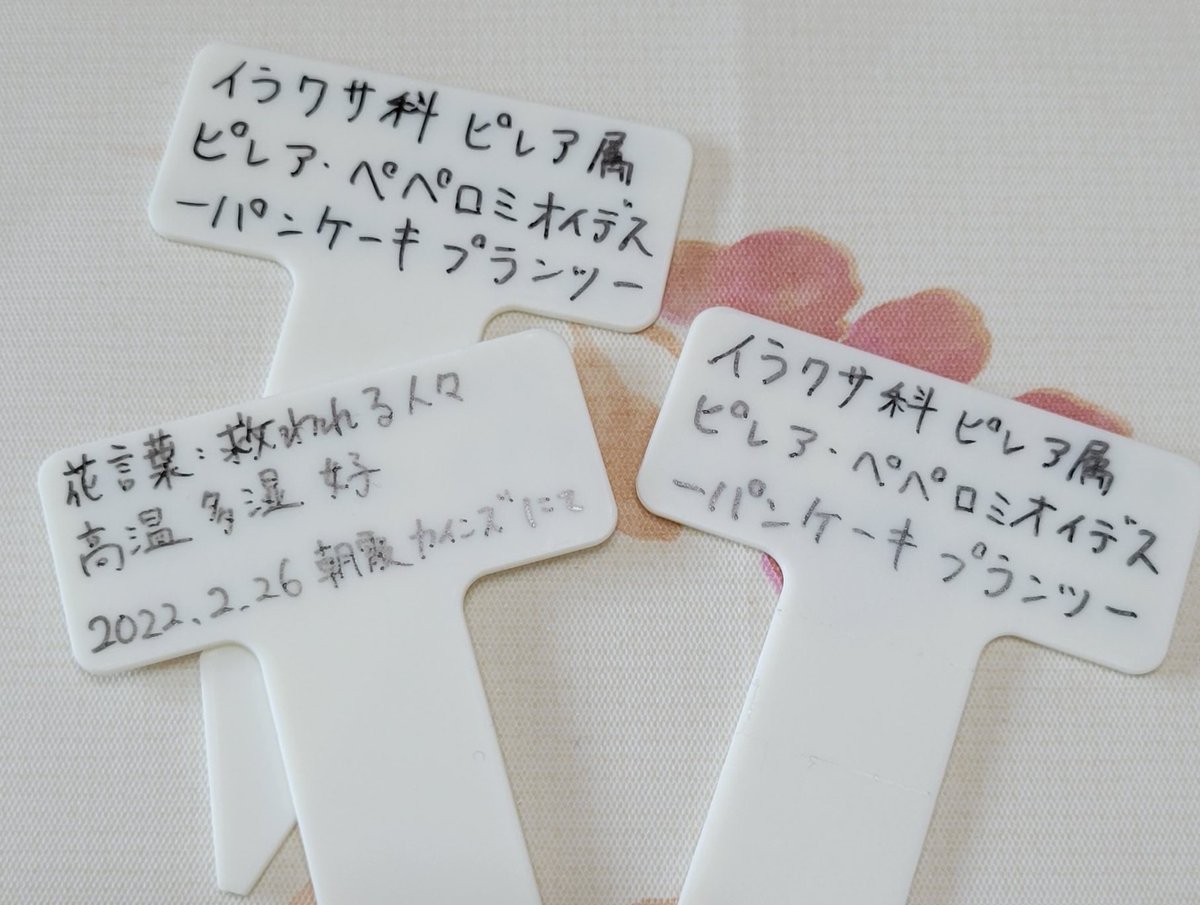 イラクサ科 ピレア属
ピレア・ペペロミオイデス
ーパンケーキプランツー
花言葉:救われる人々
高温 多湿 好
2022.2.26 朝霞カインズにて
イラクサ科 ピレア属
ピレア・ペペロミオイデス
ーパンケーキプランツー